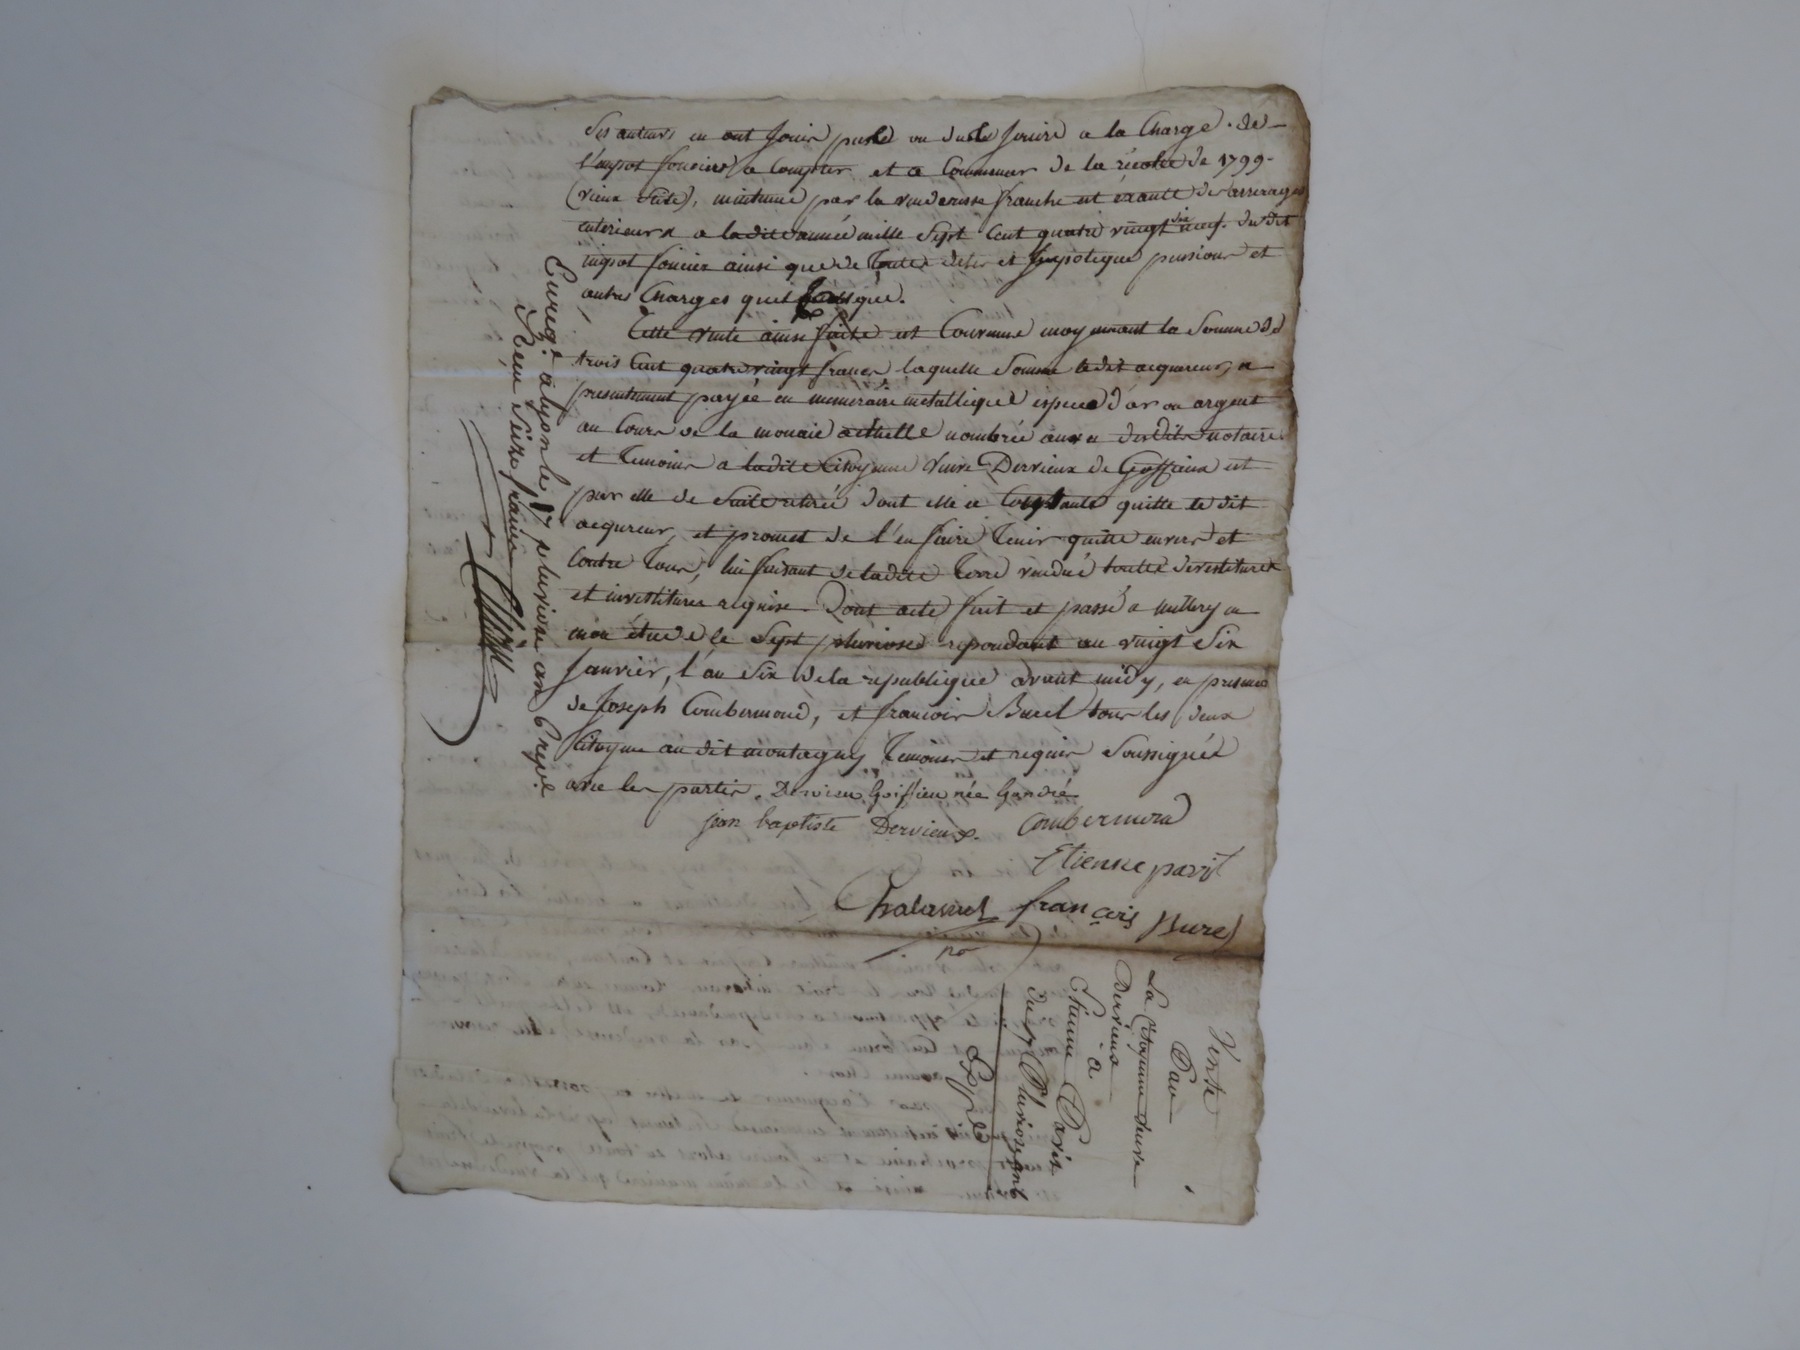 ses auteurs en ont joui pusle ou dusle jouire a la Charge de
l'impot foncier a Compter et a Commencer de la récolte de 1799
(vieux stile), maintenue par la venderesse franche et exante des arrerages
anterieurs a ladite année mille Sept Cent quatre vingt dix neuf du dit
impot foncier ainsi que de toutes dettes et hypoteque pensions et
autres Charges quelconque.
Cette vente ainsi faite est Convenue moyennant la Somme de
trois Cent quatre vingt francs laquelle Somme ledit acquereur, a
presentement payée en numeraire metallique espece d'or ou argent
au Cours de la monaie actuelle nombrée aux vu desdits notaire
et Temoins a ladite Citoyenne veuve Dervieux de Goiffieux et
par elle de Suite retirée dont elle Contante quitte le dit
acqureur, et promet de l'en faire Tenir quitte envers et
Contre Tous, lui faisant deladite Terre vendue toutes devestitures
et investitures requise. Dont acte fait et passé a millery en
mon étude le Sept pluviose repondant au vingt Six
Janvier, l'an Six de la republique avant midy, en presence
de Joseph Combermond, et francois Burel tous les deux
Citoyens au dit montagny Temoins et requis Soussignés
avec les parties. Dervieu Goiffieu née Gandié
jean baptiste Dervieux. Combermond
Etienne pavit
Chalamel françois Burel
no
Enreg.é a lyon le 17 pluviose an 6 repu.
Reçu Seize francs
Vente
Par
La Citoyenne Veuve
Dervieux
a
Etienne Pavit
du 7 Pluviose an 6